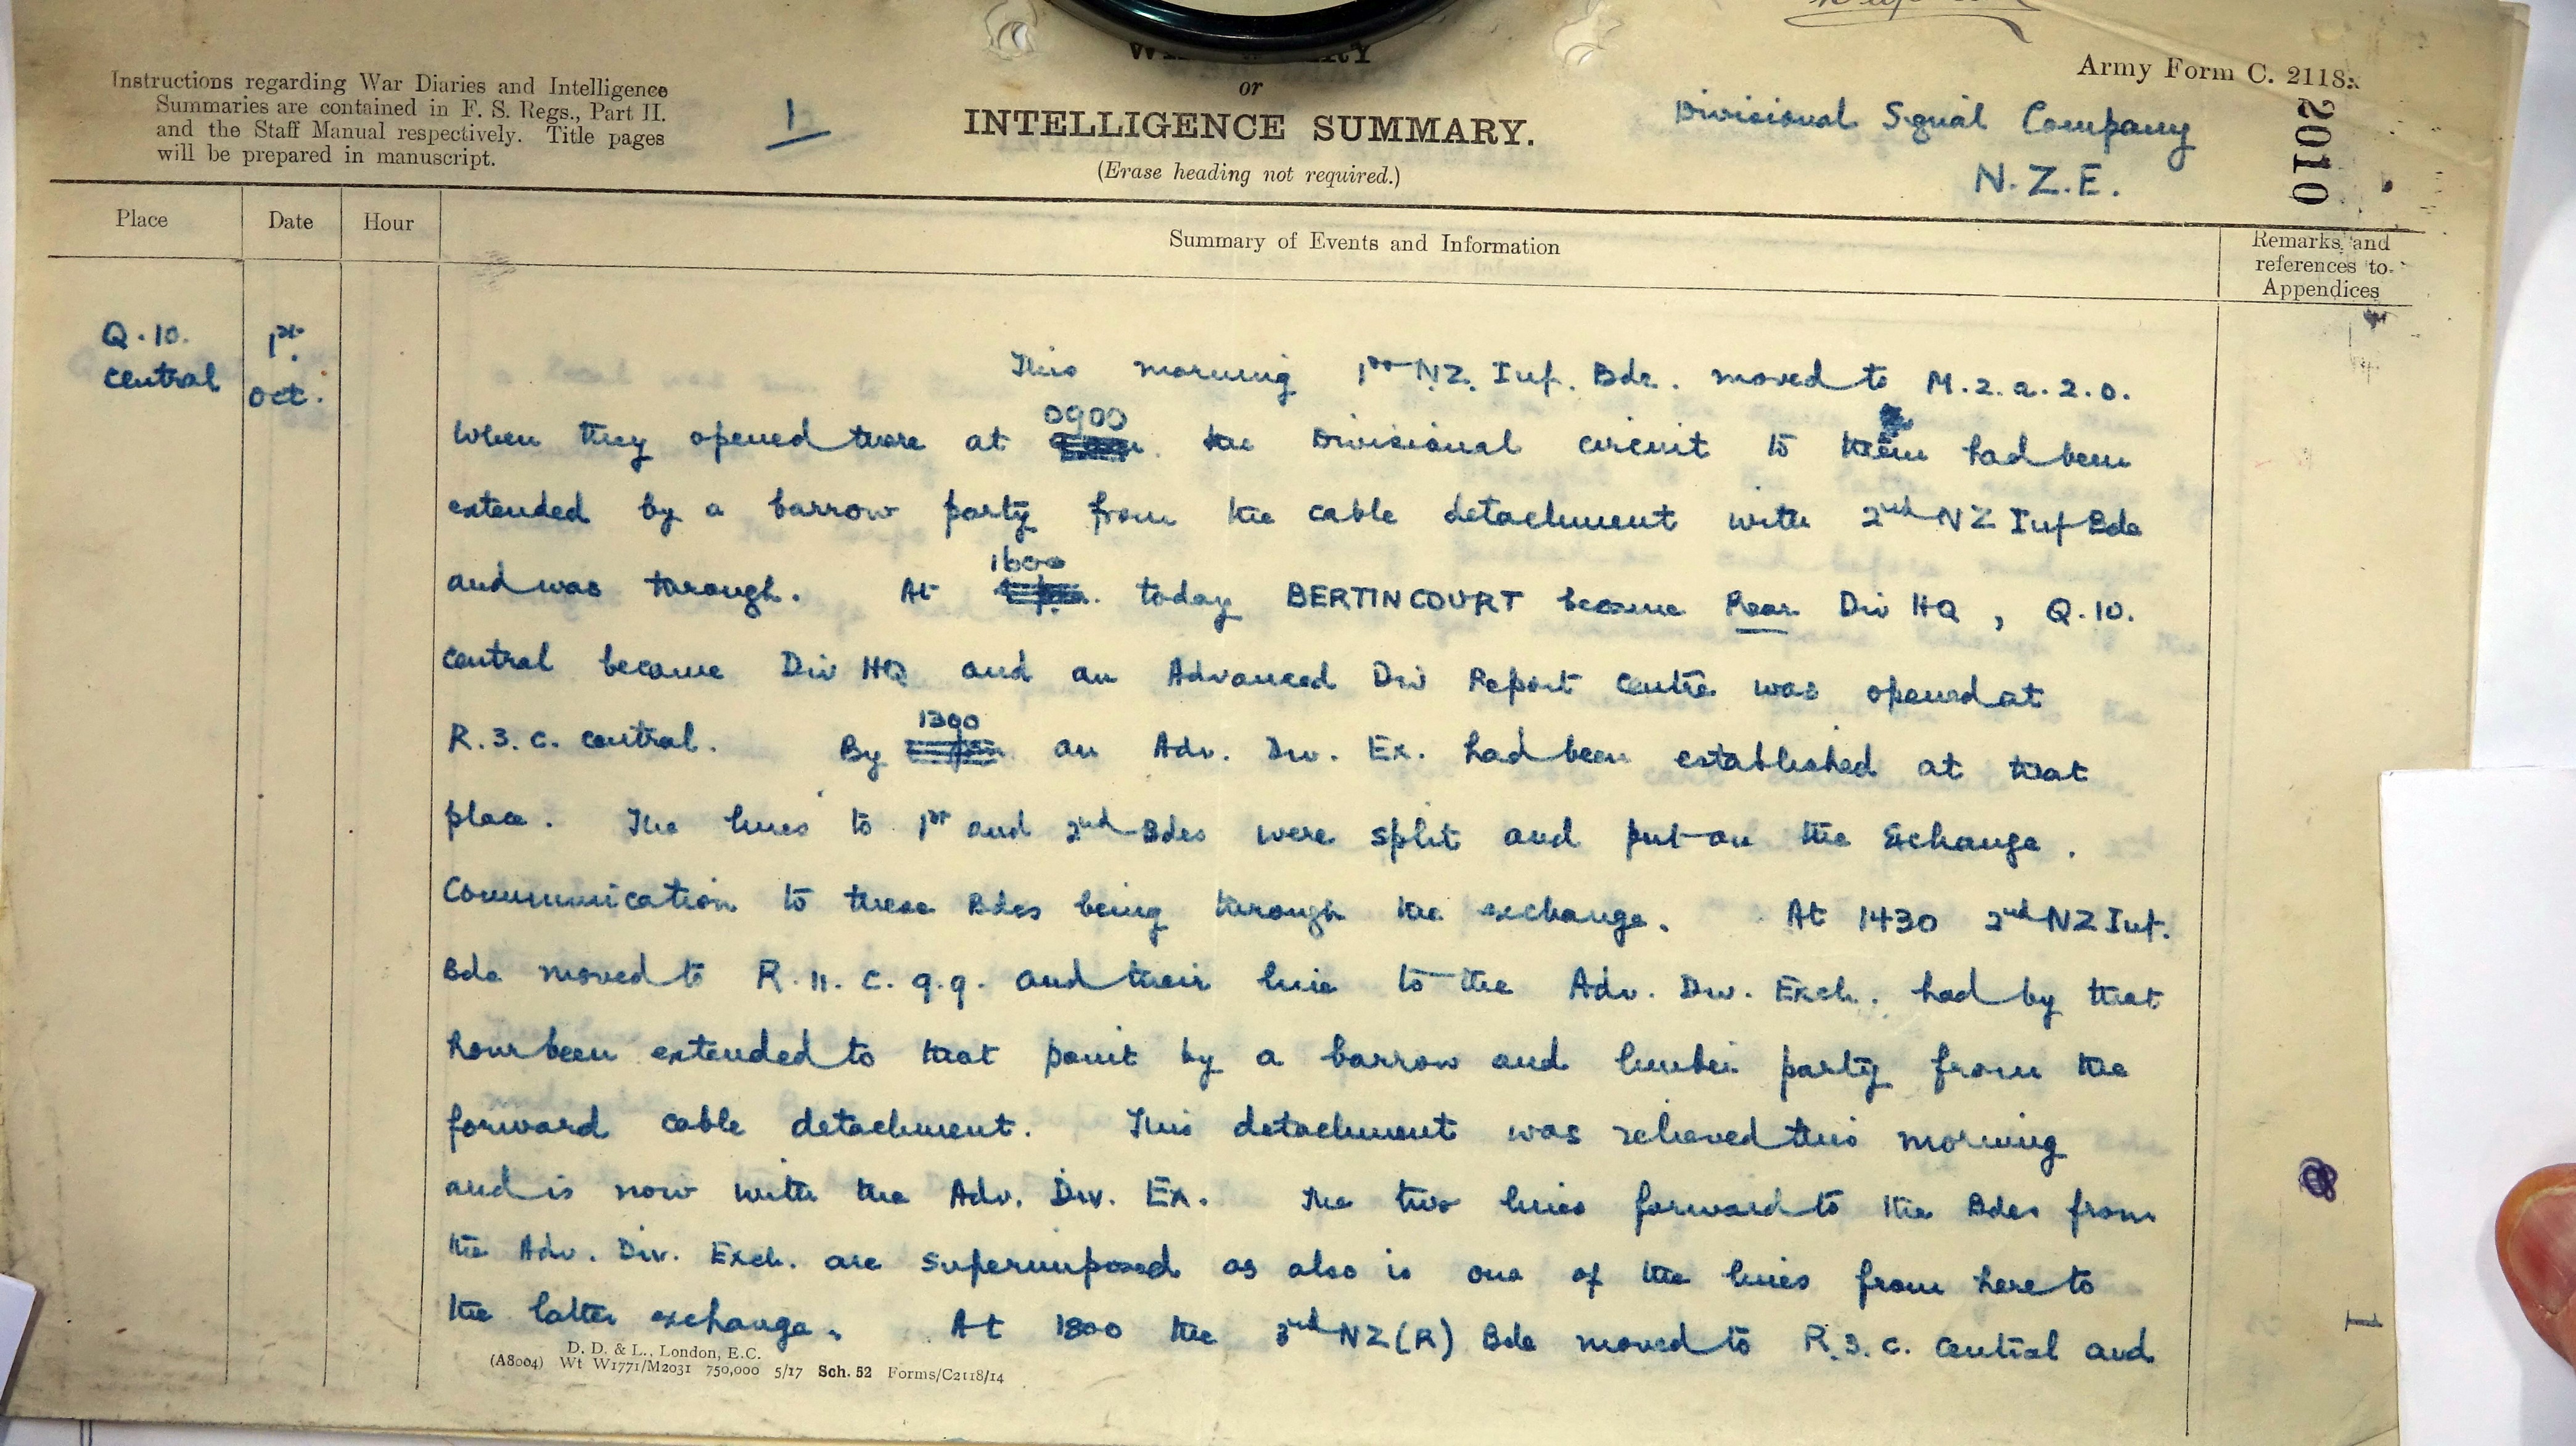 Army Form C. 2118.
Instructions regarding War Diaries and Intelligence
Summaries are contained in F. S. Regs., Part II.
and the Staff Manual respectively. Title pages
will be prepared in manuscript.
1
or
INTELLIGENCE SUMMARY.
(Erase heading not required.)
Divisional Signal Company
N.Z.E.
2010
Place
Date
Hour
Summary of Events and Information
Remarks and
references to
Appendices
Q.10.
central
1st
Oct.
This morning 1st NZ. Inf. Bde. moved to M.2.a.2.0.
0900
When they opened there at the Divisional circuit to them had been
extended by a barrow party from the cable detachment with 2nd NZ Inf Bde
1600
and was through. At today BERTINCOURT became Rear Div HQ, Q.10.
central became Div HQ and an Advanced Div Report Centre was opened at
1300
R.3.c. central. By an Adv. Div. Ex. had been established at that
place. The lines to 1st and 2nd Bdes were split and put on the Exchange.
Communication to these Bdes being through the exchange. At 1430 2nd NZ Inf.
Bde moved to R.11.c.9.9. and their line to the Adv. Div. Exch. had by that
hour been extended to that point by a barrow and limber party from the
forward cable detachment. This detachment was relieved this morning
and is now with the Adv. Div. Ex. The two lines forward to the Bdes from
the Adv. Div. Exch. are superimposed as also is one of the lines from here to
the latter exchange. At 1800 the 3rd NZ(R) Bde moved to R.3.c. central and
D. D. & L., London, E.C.
(A8004) Wt W1771/M2031 750,000 5/17 Sch. 52 Forms/C2118/14
1